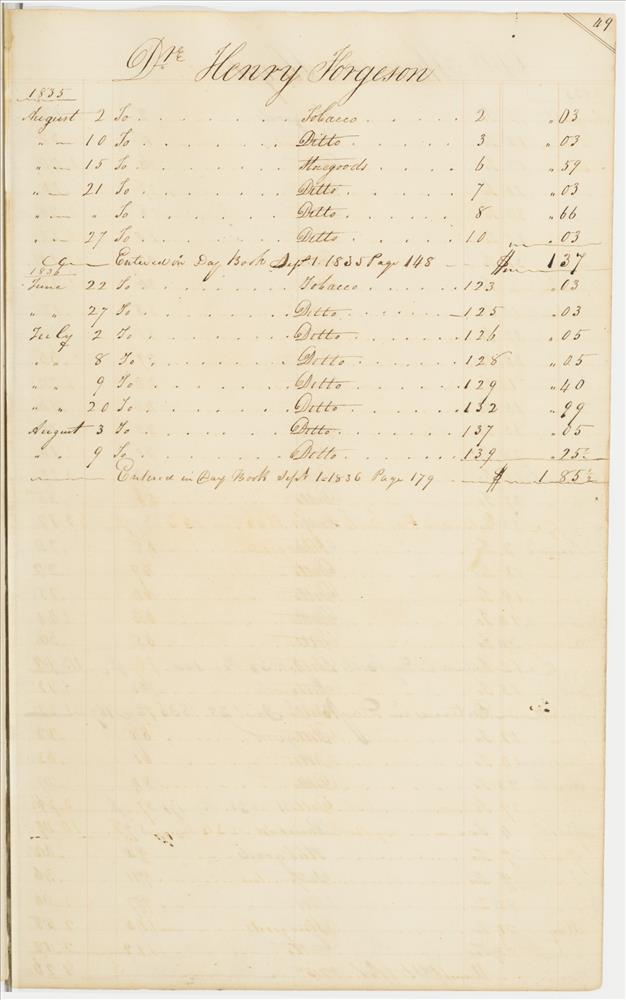 49
Dre Henry Forgeson
1835
August 2 To . . . . . . . Tobacco . . . . . 2 " 03
" — 10 To . . . . . . . Ditto . . . . . 3 " 03
" — 15 To . . . . . . . . 6 " 59
" — 21 To . . . . . . . Ditto . . . . . 7 " 03
" — " To . . . . . . . Ditto . . . . . 8 " 66
" — 27 To . . . . . . . Ditto . . . . . 10 " 03
Entered in Day Book Sept 1. 1835 Page 148 — $ 1 37
1836
June 22 To . . . . . . . Tobacco . . . . . 123 " 03
" " 27 To . . . . . . . Ditto . . . . . 125 " 03
July 2 To . . . . . . . Dotto . . . . . 126 " 05
" " 8 To . . . . . . . Dotto . . . . . 128 " 05
" " 9 To . . . . . . . Dotto . . . . . 129 " 40
" " 20 To . . . . . . . Dotto . . . . . 132 " 99
August 3 To . . . . . . . Ditto . . . . . 137 " 05
" " 9 To . . . . . . . Dotto . . . . . 139 " 25½
Entered in Day Book Sept 1-1836 Page 179 — $ 1 85½